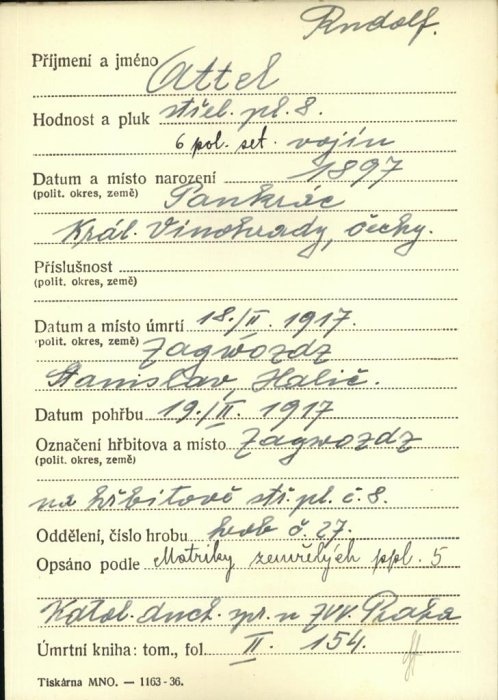 Rudolf.
Příjmení a jméno Attel
Hodnost a pluk střel. pl. 8.
6 pol. set. vojín
Datum a místo narození 1897
(polit. okres, země) Pankrác
Král. Vinohrady, Čechy.
Příslušnost
(polit. okres, země)
Datum a místo úmrtí 18./II. 1917.
(polit. okres, země) Zagwozdz
Stanislav, Halič.
Datum pohřbu 19./II. 1917
Označení hřbitova a místo Zagwozdz
(polit. okres, země)
na hřbitově stř. pl. č. 8.
Oddělení, číslo hrobu hrob č. 27.
Opsáno podle Matriky zemřelých ppl. 5
Katol. duch. spr. u ZVV. Praha
Úmrtní kniha: tom., fol. II. 154.
Tiskárna MNO. — 1163-36.